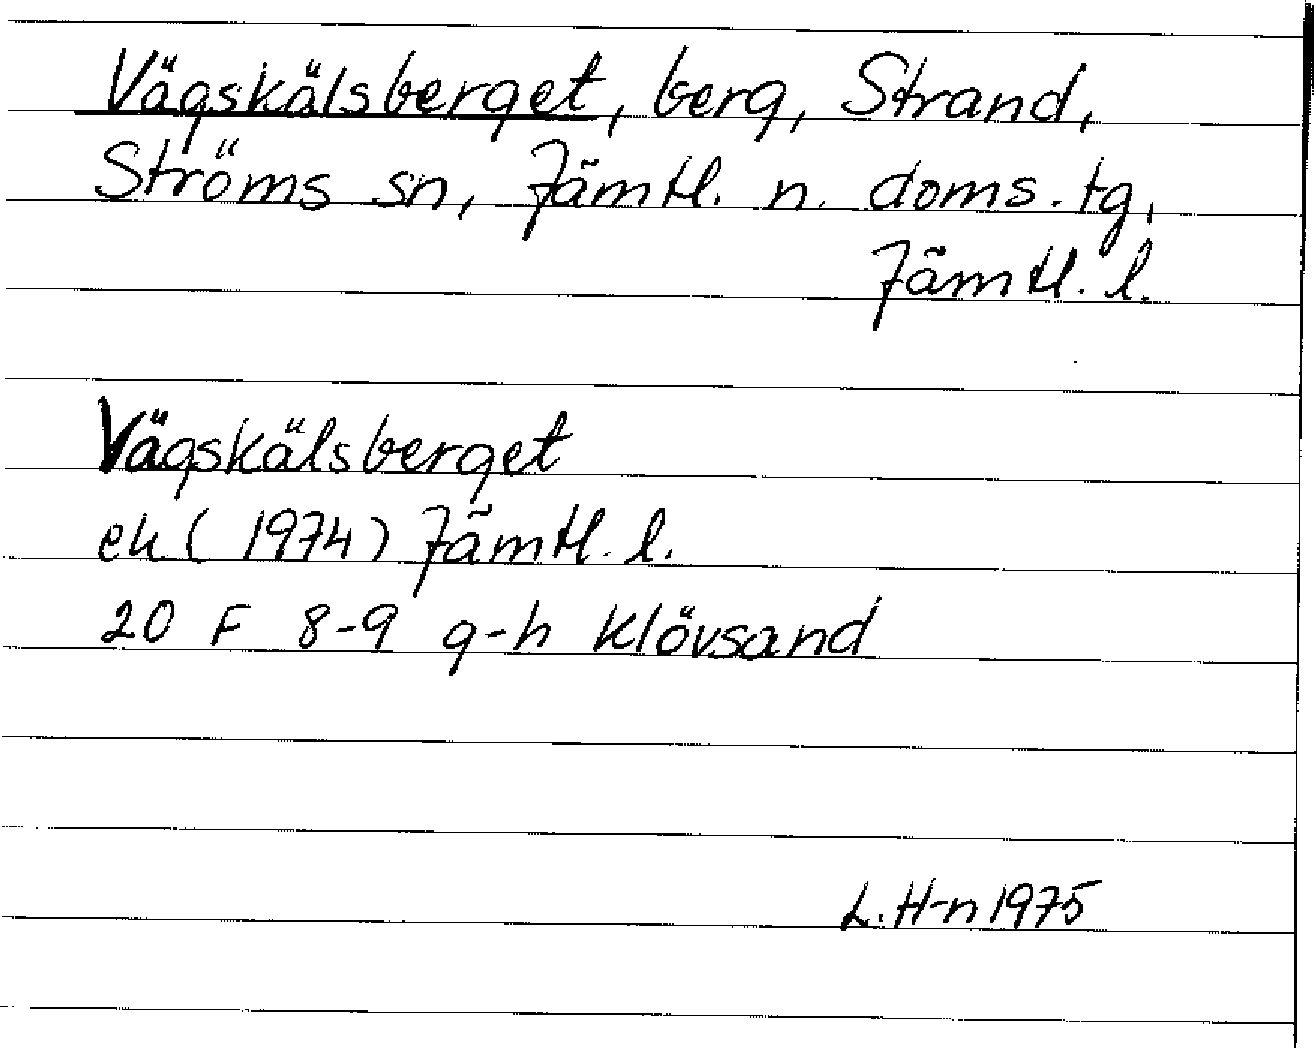 Vägskälsberget, berg, Strand,
Ströms sn, Jämtl. n. doms. tg,
Jämtl. l.
Vägskälsberget
ek (1974) Jämtl. l.
20 F 8-9 g-h Klövsand
L. H-n 1975